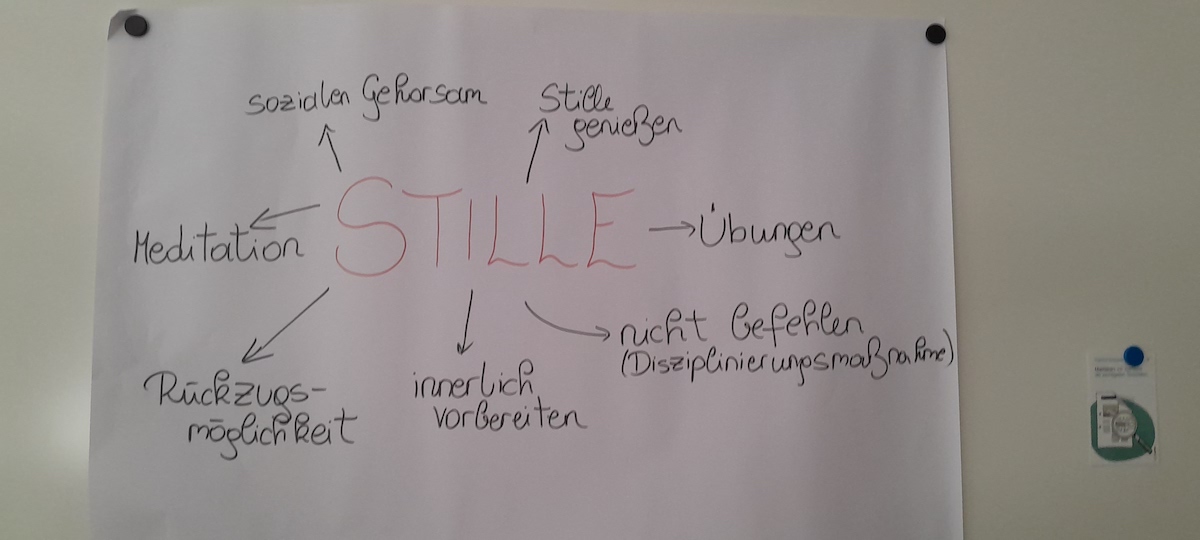 sozialen Gehorsam
Stille
genießen
STILLE
Meditation
Übungen
nicht befehlen
(Disziplinierungsmaßnahme)
Rückzugs-
möglichkeit
innerlich
vorbereiten